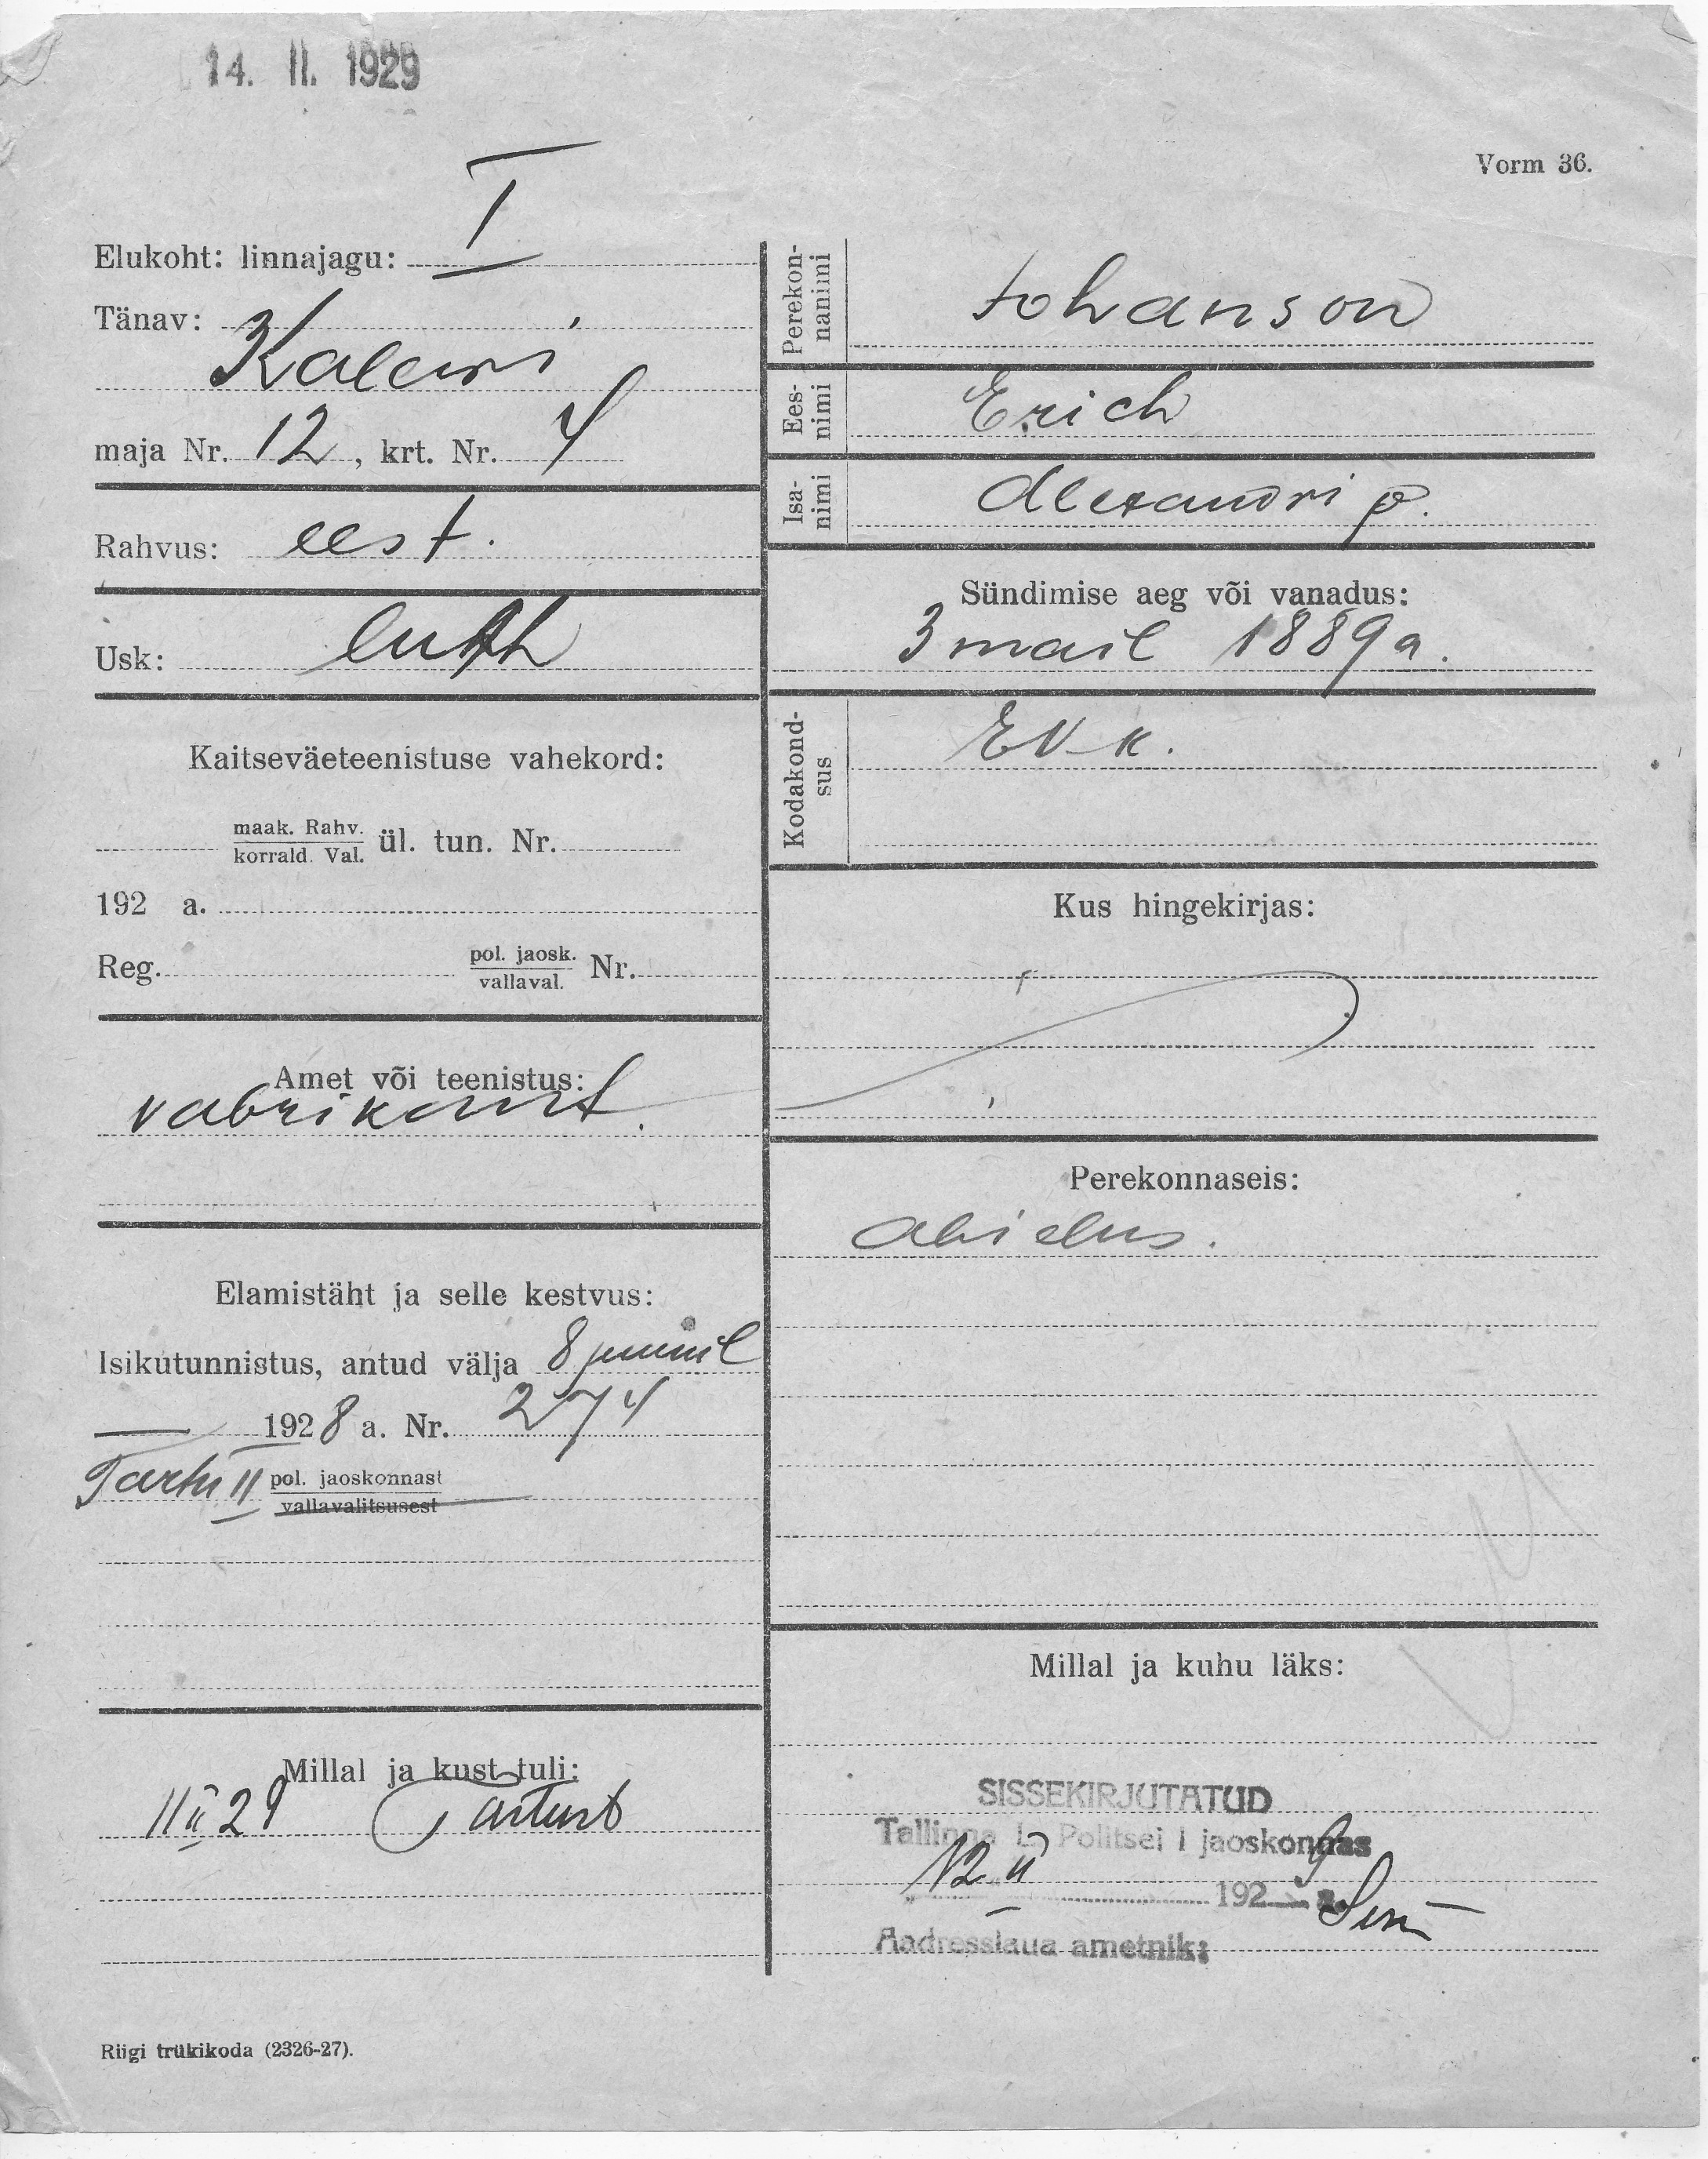 14. II. 1929
Vorm 36.
Elukoht: linnajagu: I
Tänav:
Kalewi
maja Nr. 12, krt. Nr. 4
Rahvus: eest.
Usk: luth
Kaitseväeteenistuse vahekord:
maak. Rahv.
korrald. Val. ül. tun. Nr.
192 a.
Reg. pol. jaosk.
vallaval. Nr.
Amet või teenistus:
vabrikant.
Elamistäht ja selle kestvus:
Isikutunnistus, antud välja 8 juunil
1928 a. Nr. 274
Tartu II pol. jaoskonnast
vallavalitsusest
Millal ja kust tuli:
11 II 29 Tartust
Riigi trükikoda (2326-27).
Perekon-
nanimi
Johanson
Ees-
nimi
Erich
Isa-
nimi
Alexandri p.
Sündimise aeg või vanadus:
3 mail 1889 a.
Kodakond-
sus
EV k.
Kus hingekirjas:
Perekonnaseis:
abielus.
Millal ja kuhu läks:
SISSEKIRJUTATUD
Tallinna L. Politsei I jaoskonnas
12 II 1929 a.
Aadresslaua ametnik: